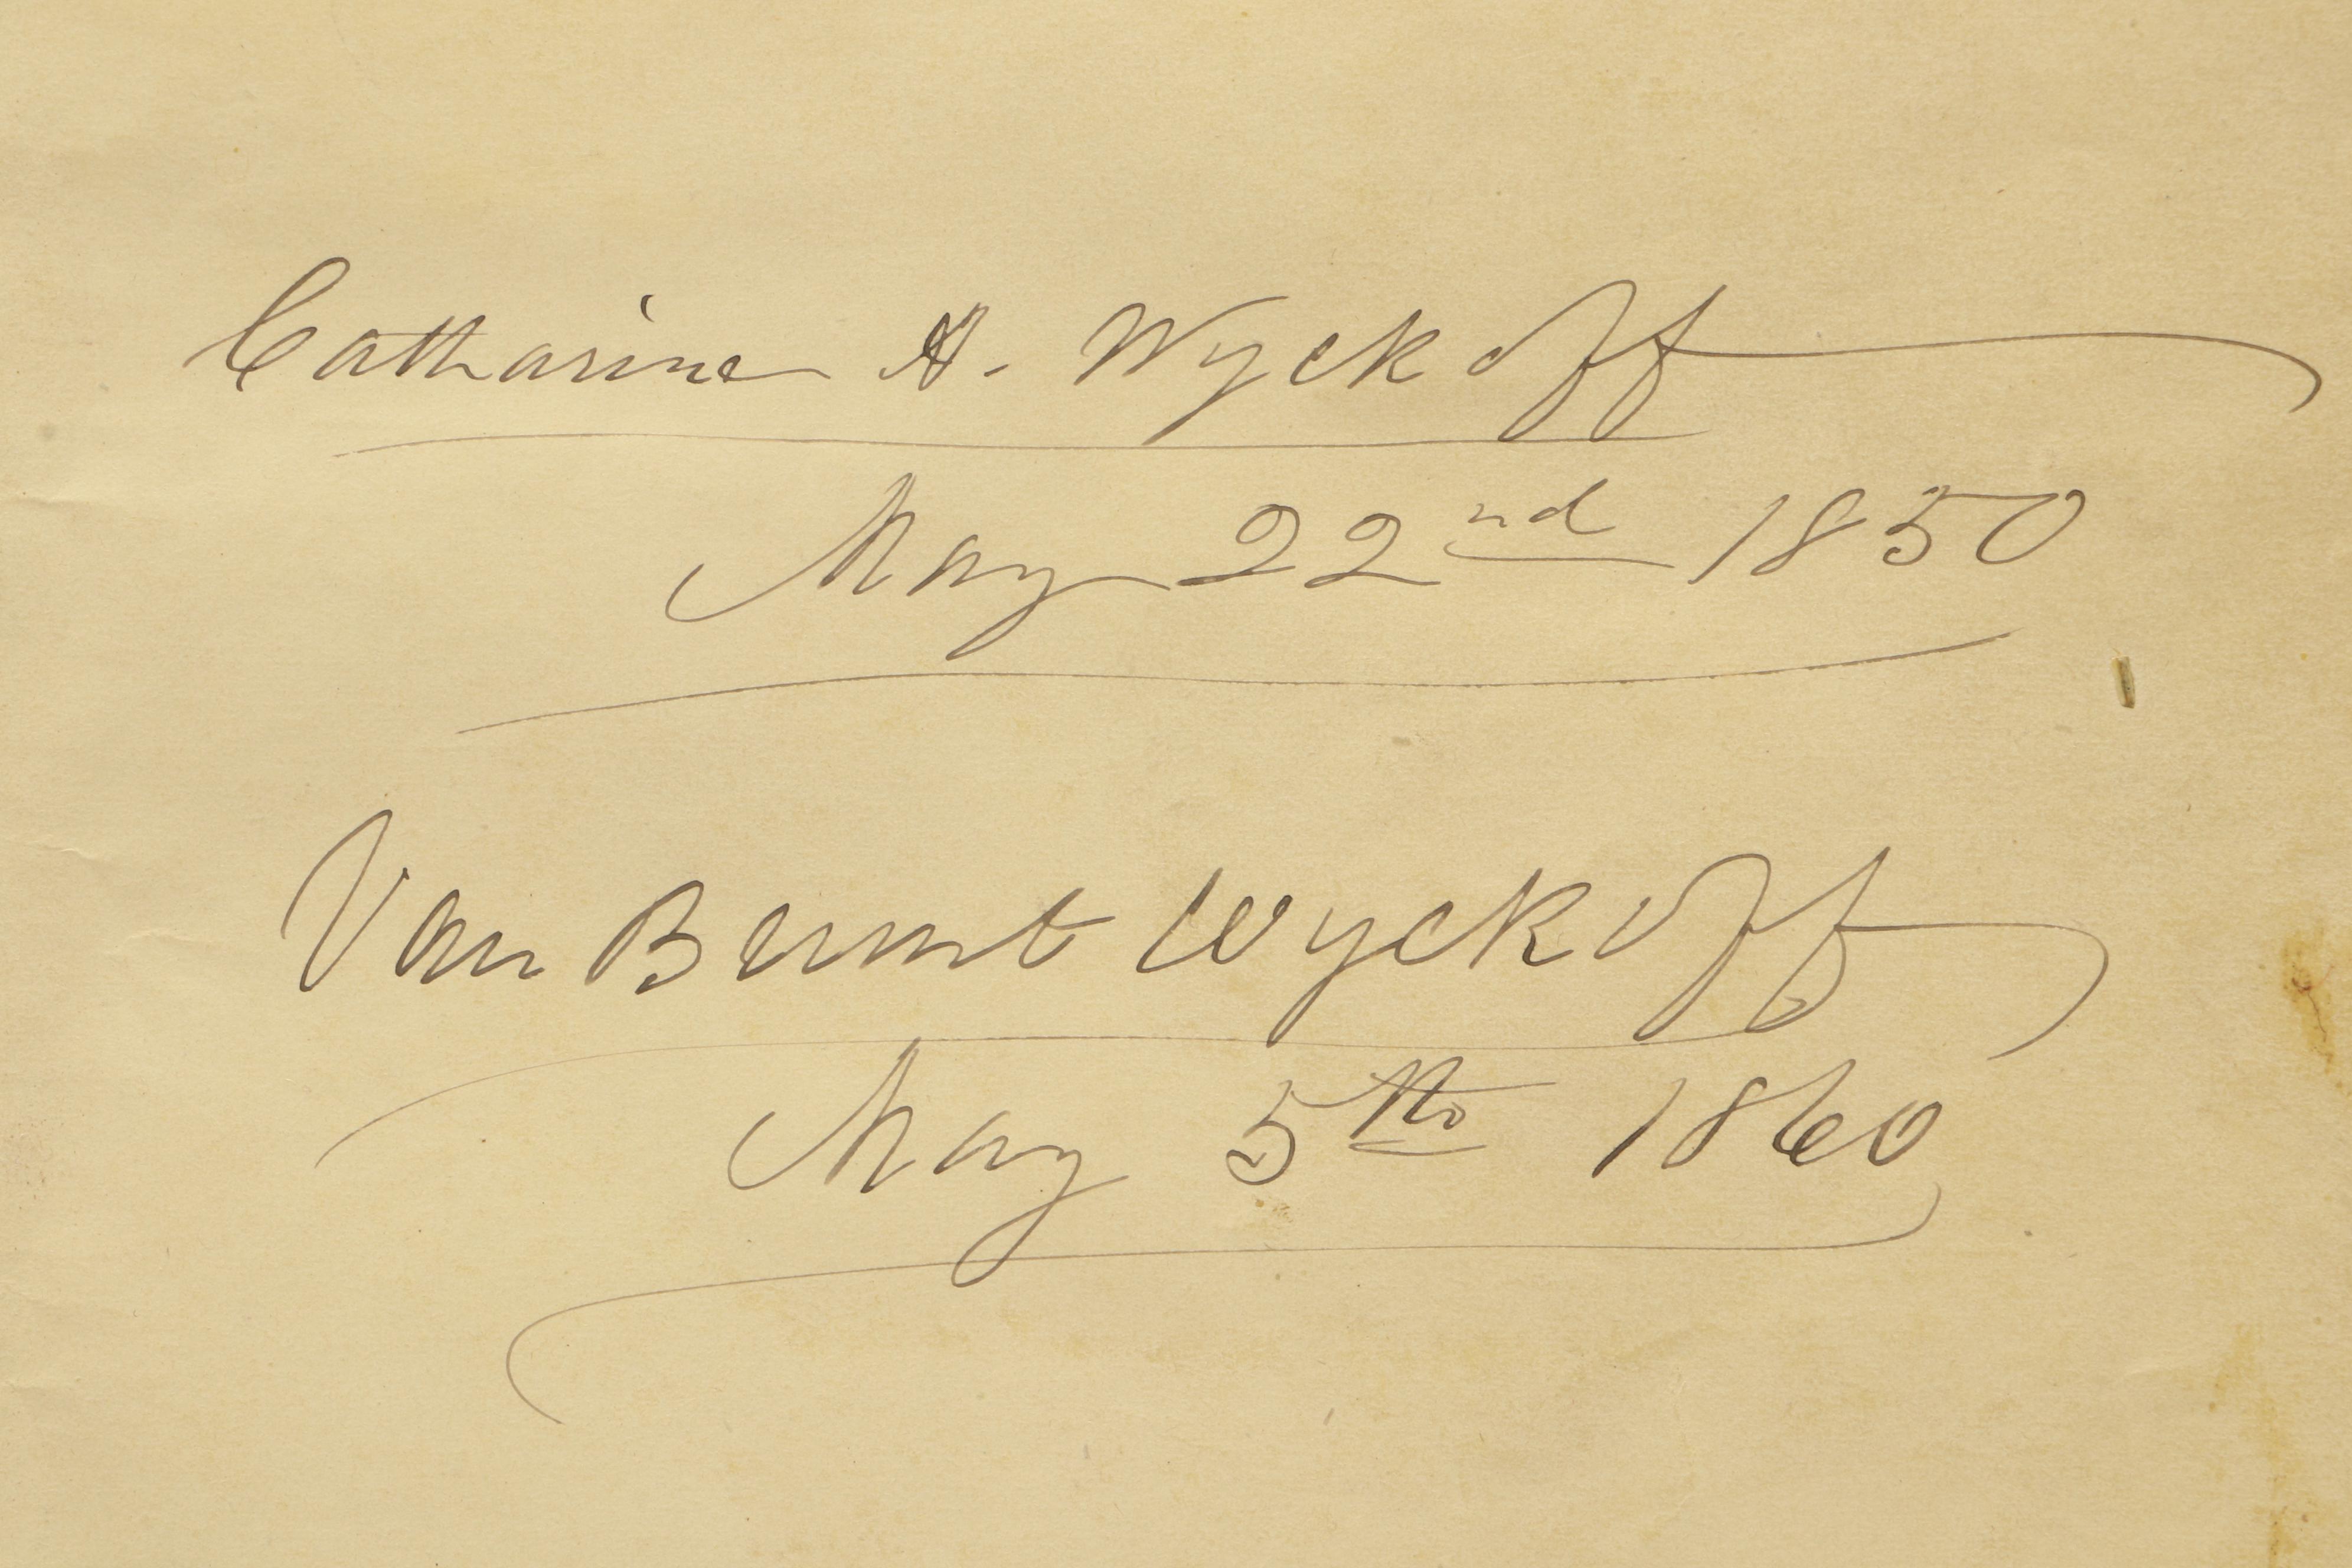 Catharine A. Wyckoff
May 22nd 1850
Van Brunt Wyckoff
May 5th 1860